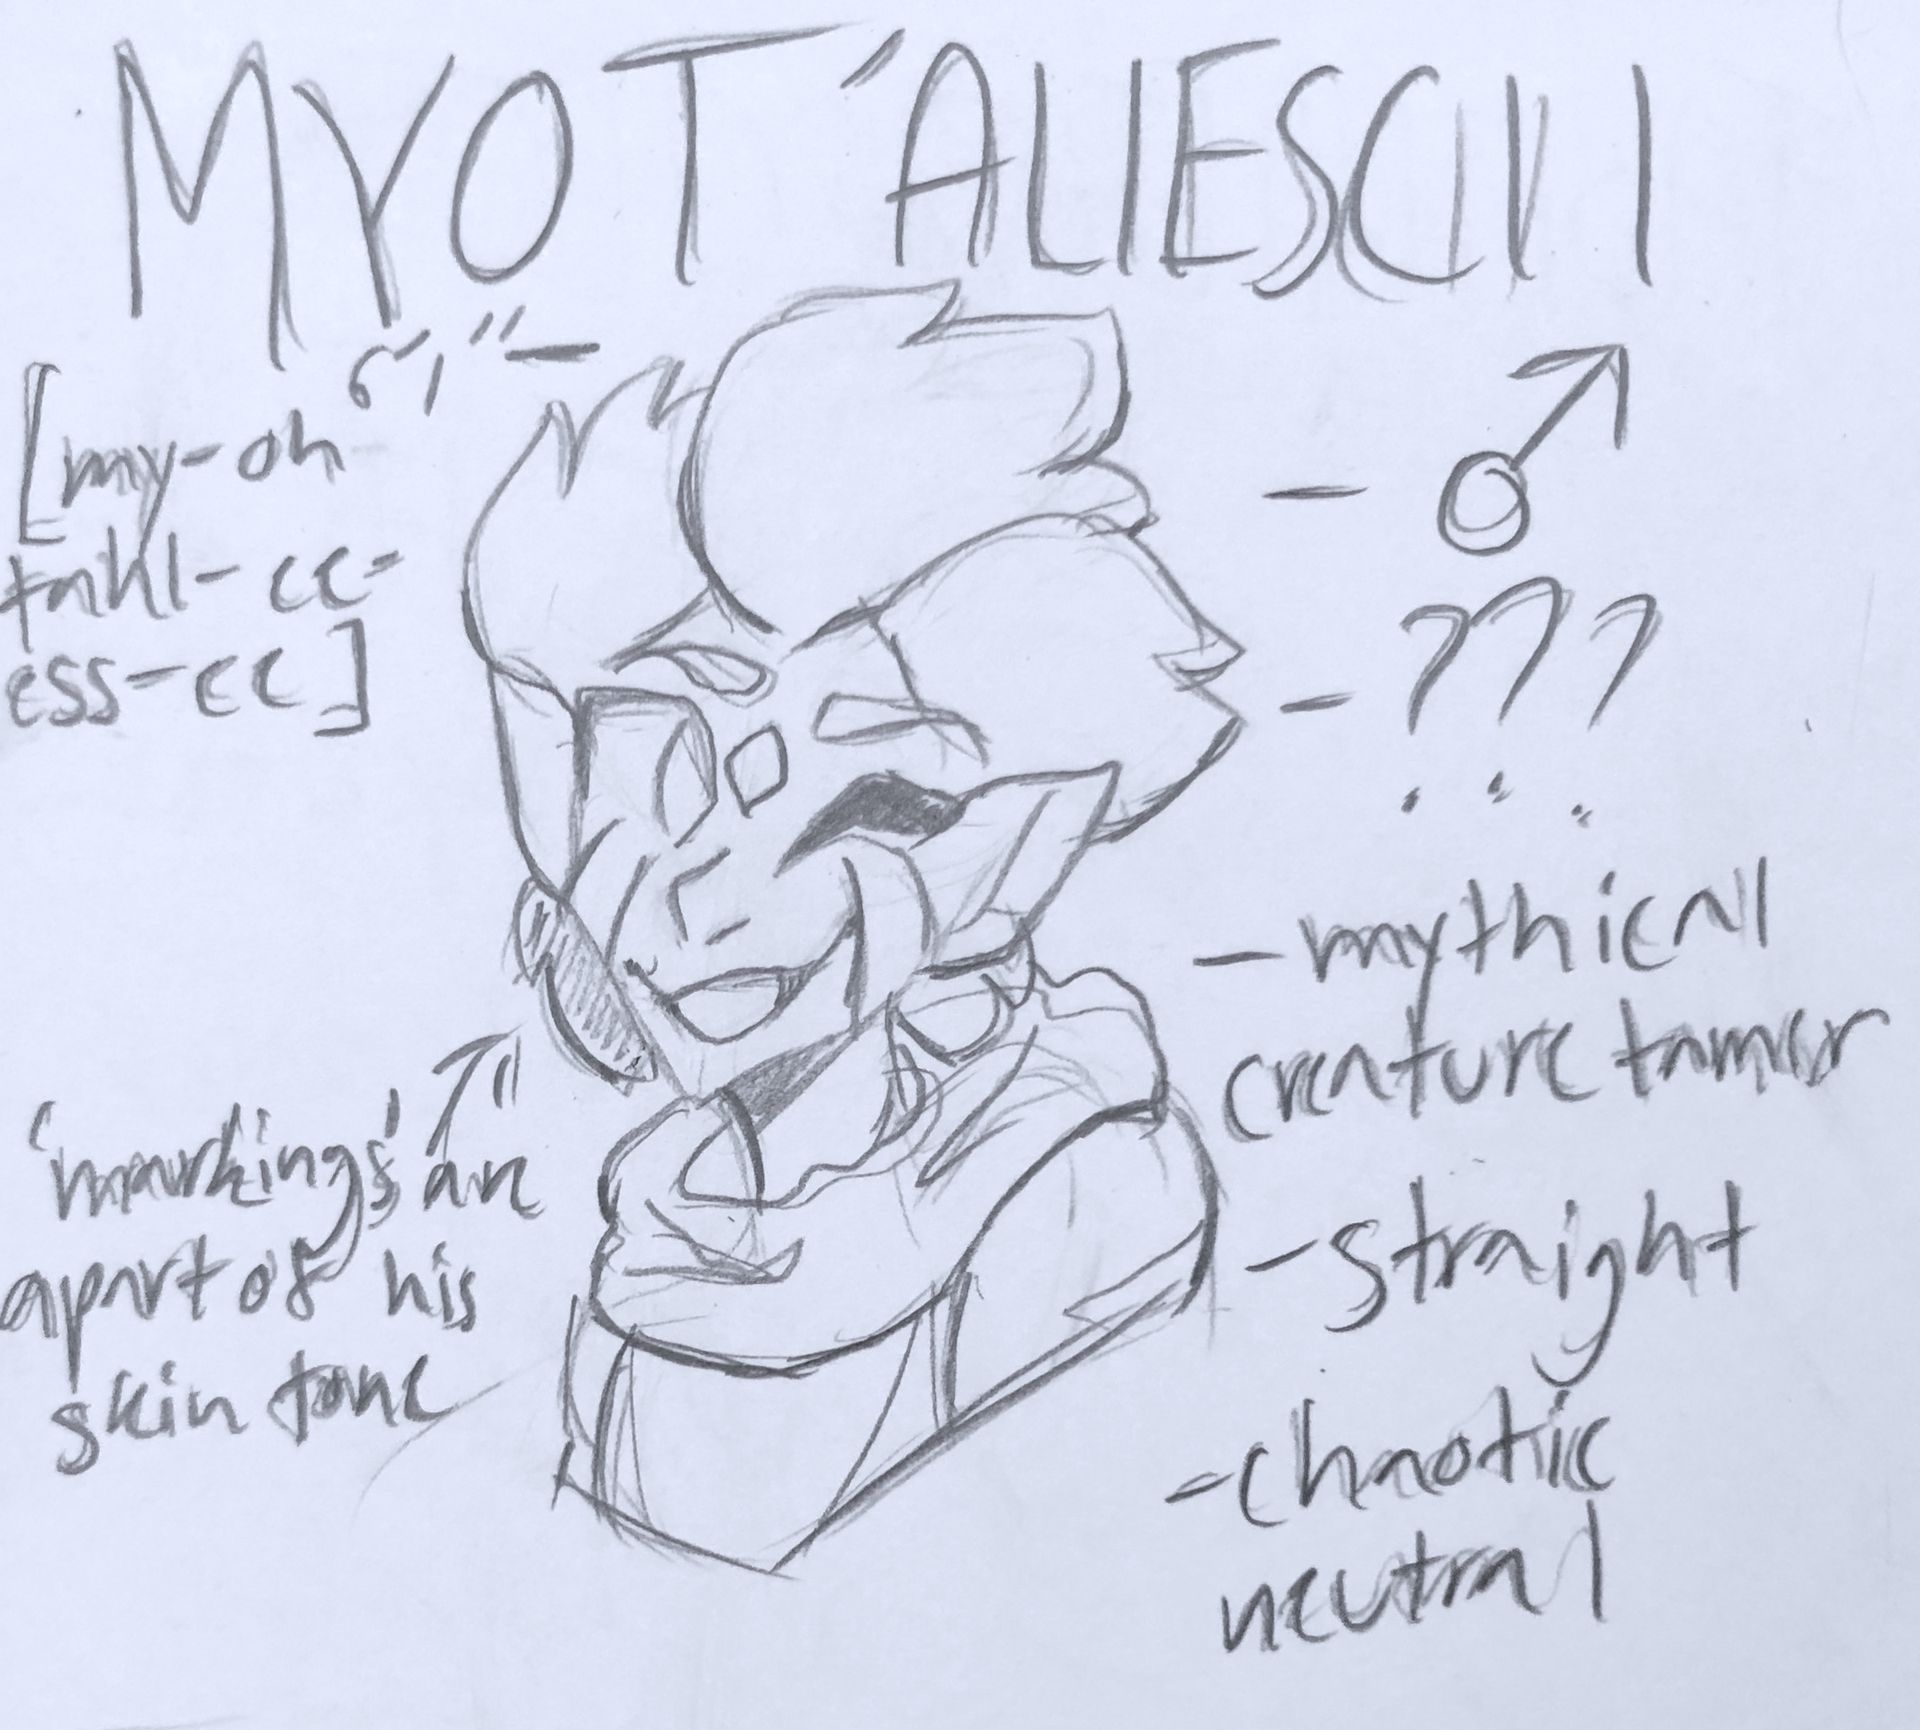 MYO T'ALIESCIII
6'1" -
[my-oh
tahl-ee-
ess-ee]
- ♂
- ???
- mythical
creature tamer
- straight
- chaotic
neutral
'markings' are
apart of his
skin tone